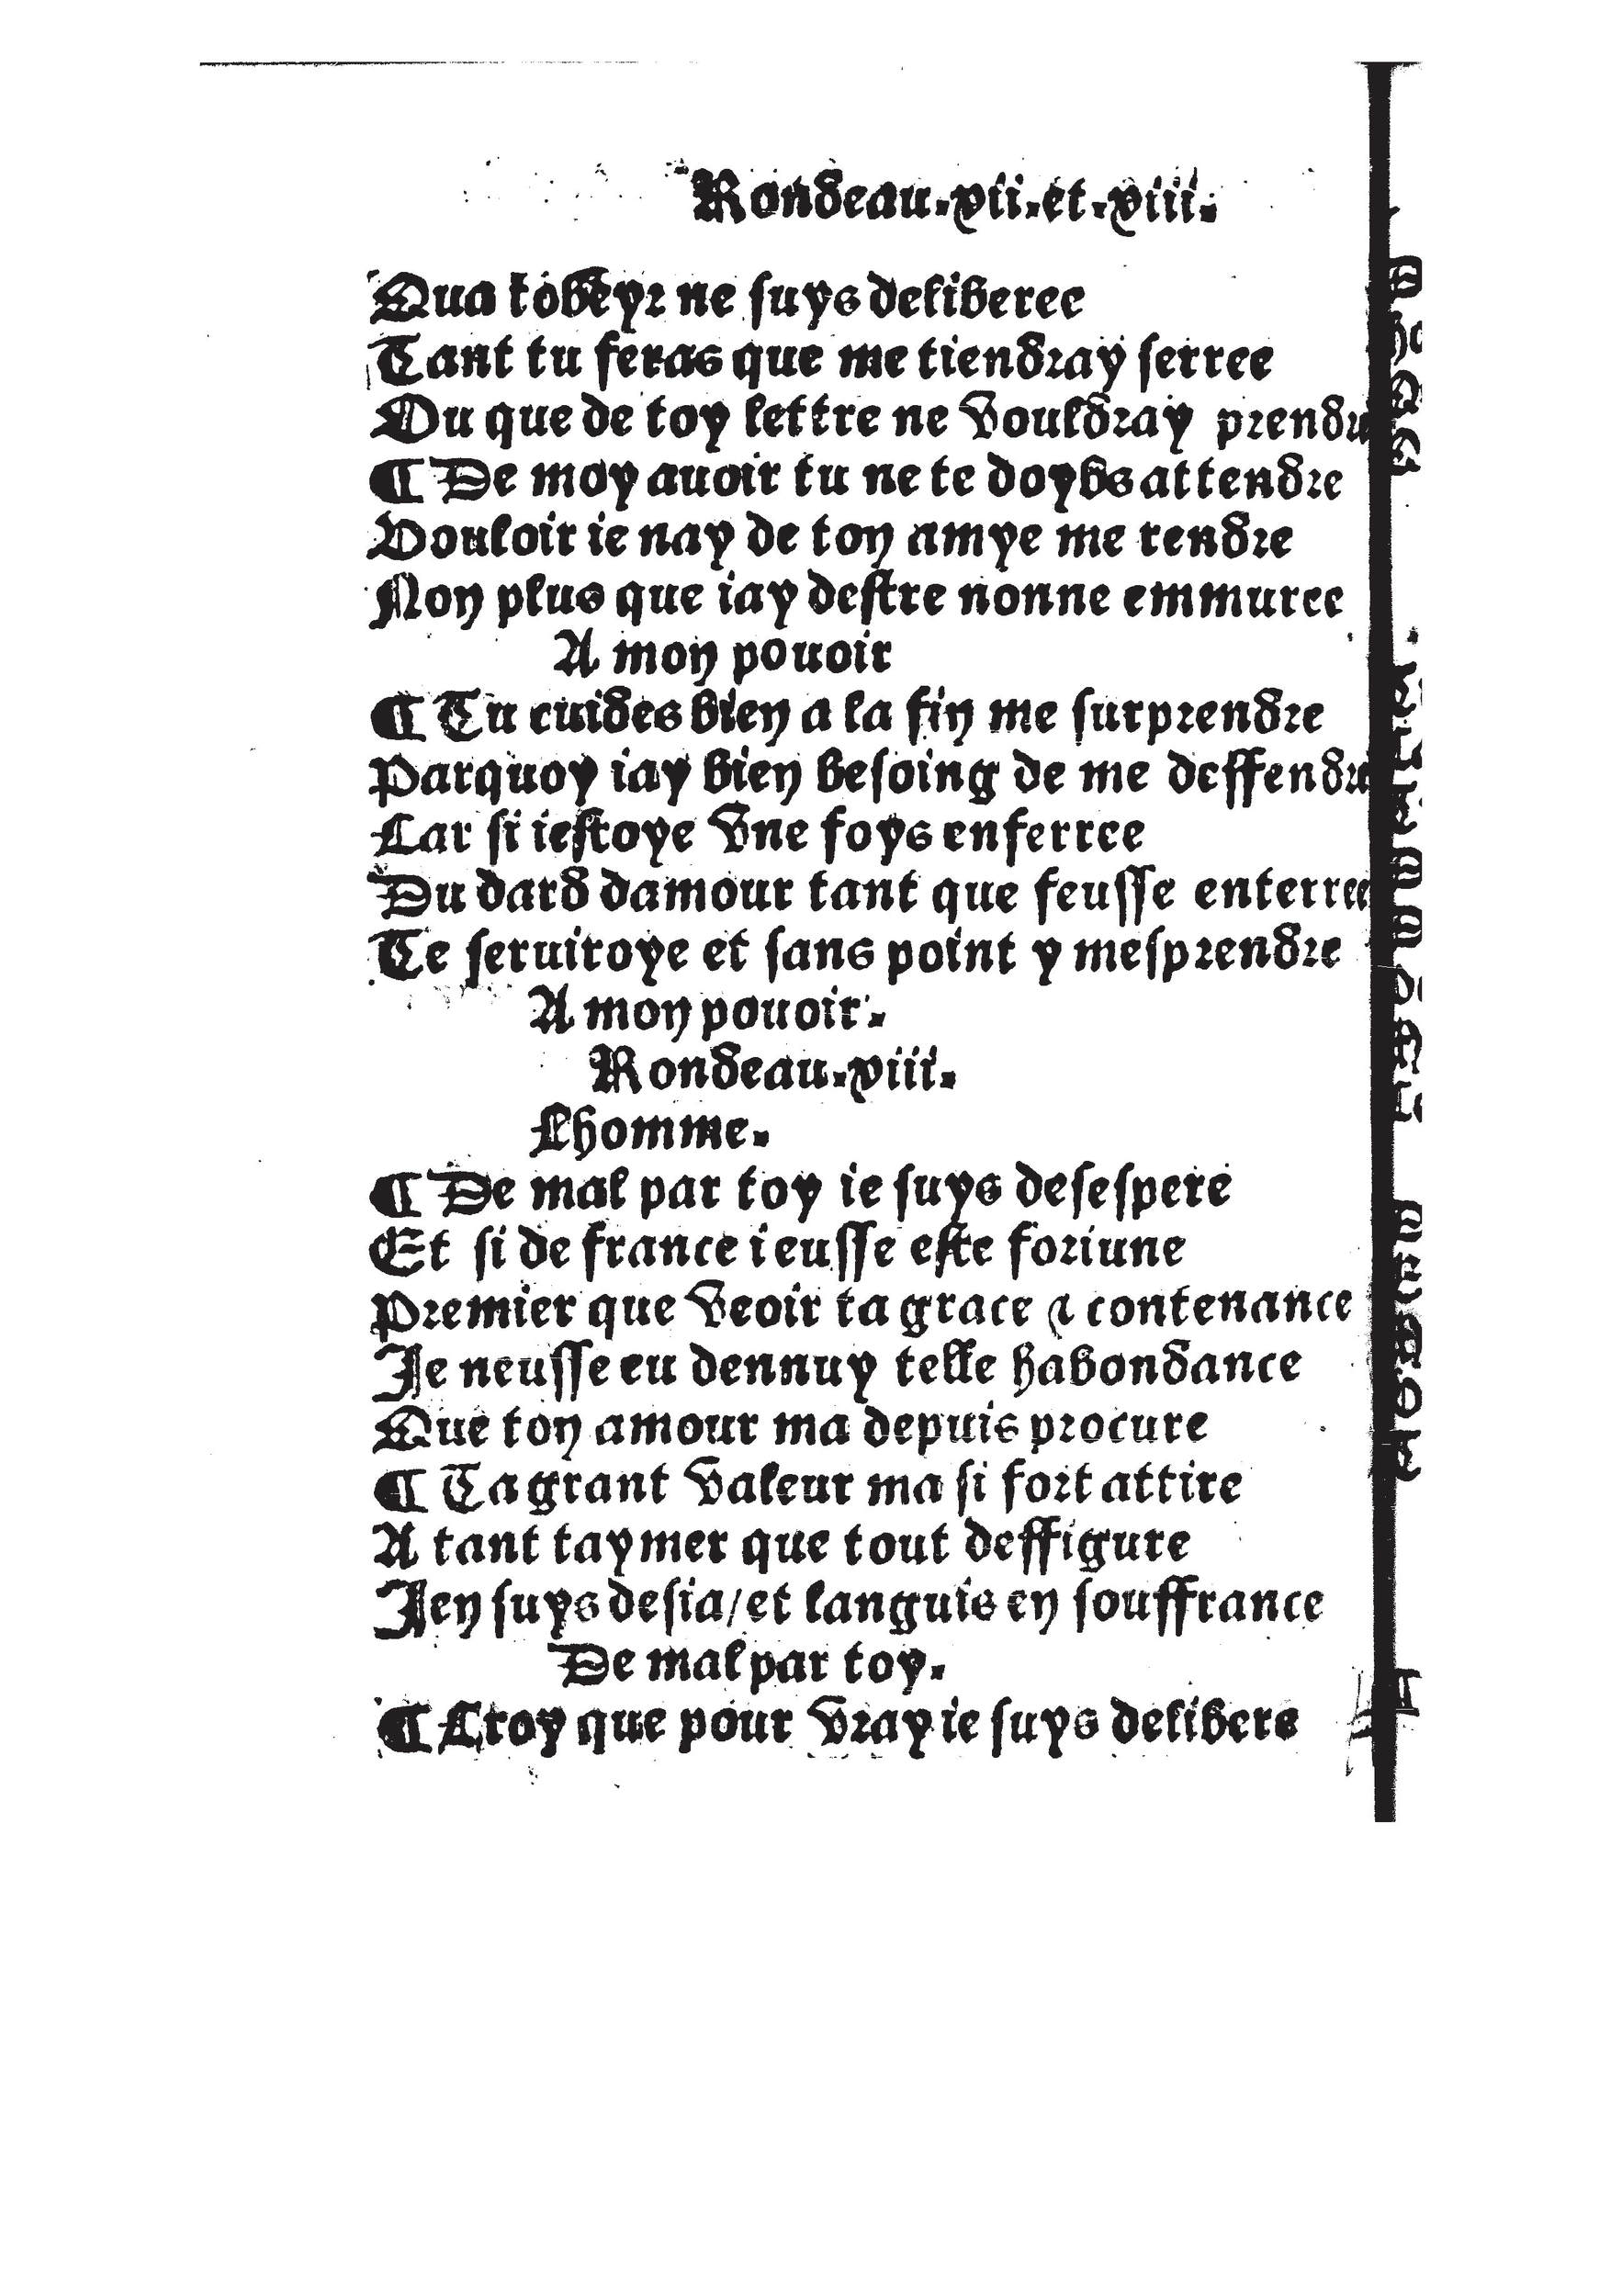 Rondeau.vii.et.viii.
Qua tobeyr ne suys deliberee
Tant tu feras que me tiendray serree
Ou que de toy lettre ne vouldray prendre
¶ De moy auoir tu ne te doybs attendre
Vouloir ie nay de ton amye me rendre
Non plus que iay destre nonne emmuree
A mon pouoir
¶ Tu cuides bien a la fin me surprendre
Parquoy iay bien besoing de me deffendre
Car si iestoye vne foys enferree
Du dard damour tant que feusse enterree
Te seruiroye et sans point y mesprendre
A mon pouoir.
Rondeau.viii.
Lhomme.
¶ De mal par toy ie suys desespere
Et si de france ieusse este foriune
Premier que veoir ta grace & contenance
Je neusse eu dennuy telle habondance
Que ton amour ma depuis procure
¶ Ta grant valeur ma si fort attire
A tant taymer que tout deffigure
Jen suys desia/et languis en souffrance
De mal par toy.
¶ Croy que pour vray ie suys delibere